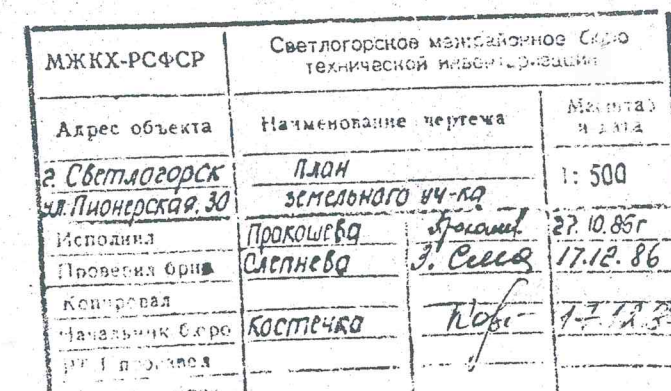 МЖКХ-РСФСР
Светлогорское межрайонное бюро
технической инвентаризации
Адрес объекта
Наименование чертежа
Масштаб
и дата
г. Светлогорск
ул. Пионерская, 30
план
земельного уч-ка
1: 500
Исполнил Прокошева 27.10.86г
Проверил бриг Слепнева 17.12.86
Копировал
Начальник бюро Костечка